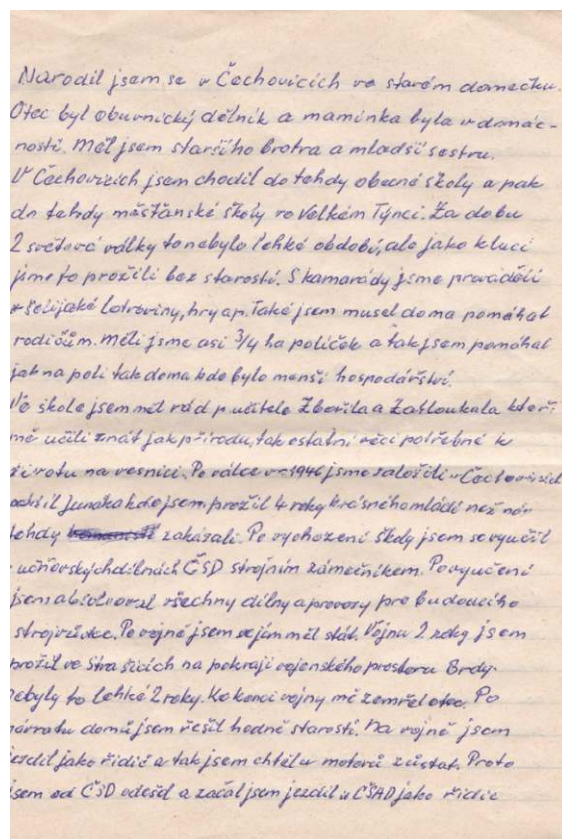 Narodil jsem se v Čechovicích ve starém domečku.
Otec byl obuvnický dělník a maminka byla v domác-
nosti. Měl jsem staršího brotra a mladší sestru.
V Čechovicích jsem chodil do tehdy obecné školy a pak
do tehdy měšťánské školy ve Velkém Týnci. Za dobu
2 světové války to nebylo lehké období, ale jako kluci
jsme to prožili bez starostí. S kamarády jsme prováděli
všelijaké lotroviny, hry ap. Také jsem musel doma pomáhat
rodičům. Měli jsme asi 3/4 ha políček a tak jsem pomáhal
jak na poli tak doma kde bylo menší hospodářství.
Ve škole jsem měl rád p. učitele Zbořila a Zatloukala kteří
mě učili znát jak přírodu, tak ostatní věci potřebné k
životu na vesnici. Po válce v r 1946 jsme založili v Čechovicích
oddíl Junáka kde jsem prožil 4 roky krásného mládí než nám
tehdy zakázali. Po vychození školy jsem se vyučil
v učňovských dílnách ČSD strojním zámečníkem. Po vyučení
jsem absolvoval všechny dílny a provozy pro budoucího
strojvůdce. Po vojně jsem se jím měl stát. Vojnu 2 roky jsem
prožil ve Strašicích na pokraji vojenského prostoru Brdy.
Nebyly to lehké 2 roky. Ke konci vojny mě zemřel otec. Po
návratu domů jsem řešil hodně starostí. Na vojně jsem
jezdil jako řidič a tak jsem chtěl u motorů zůstat. Proto
jsem od ČSD odešel a začal jsem jezdil u ČSAD jako řidič